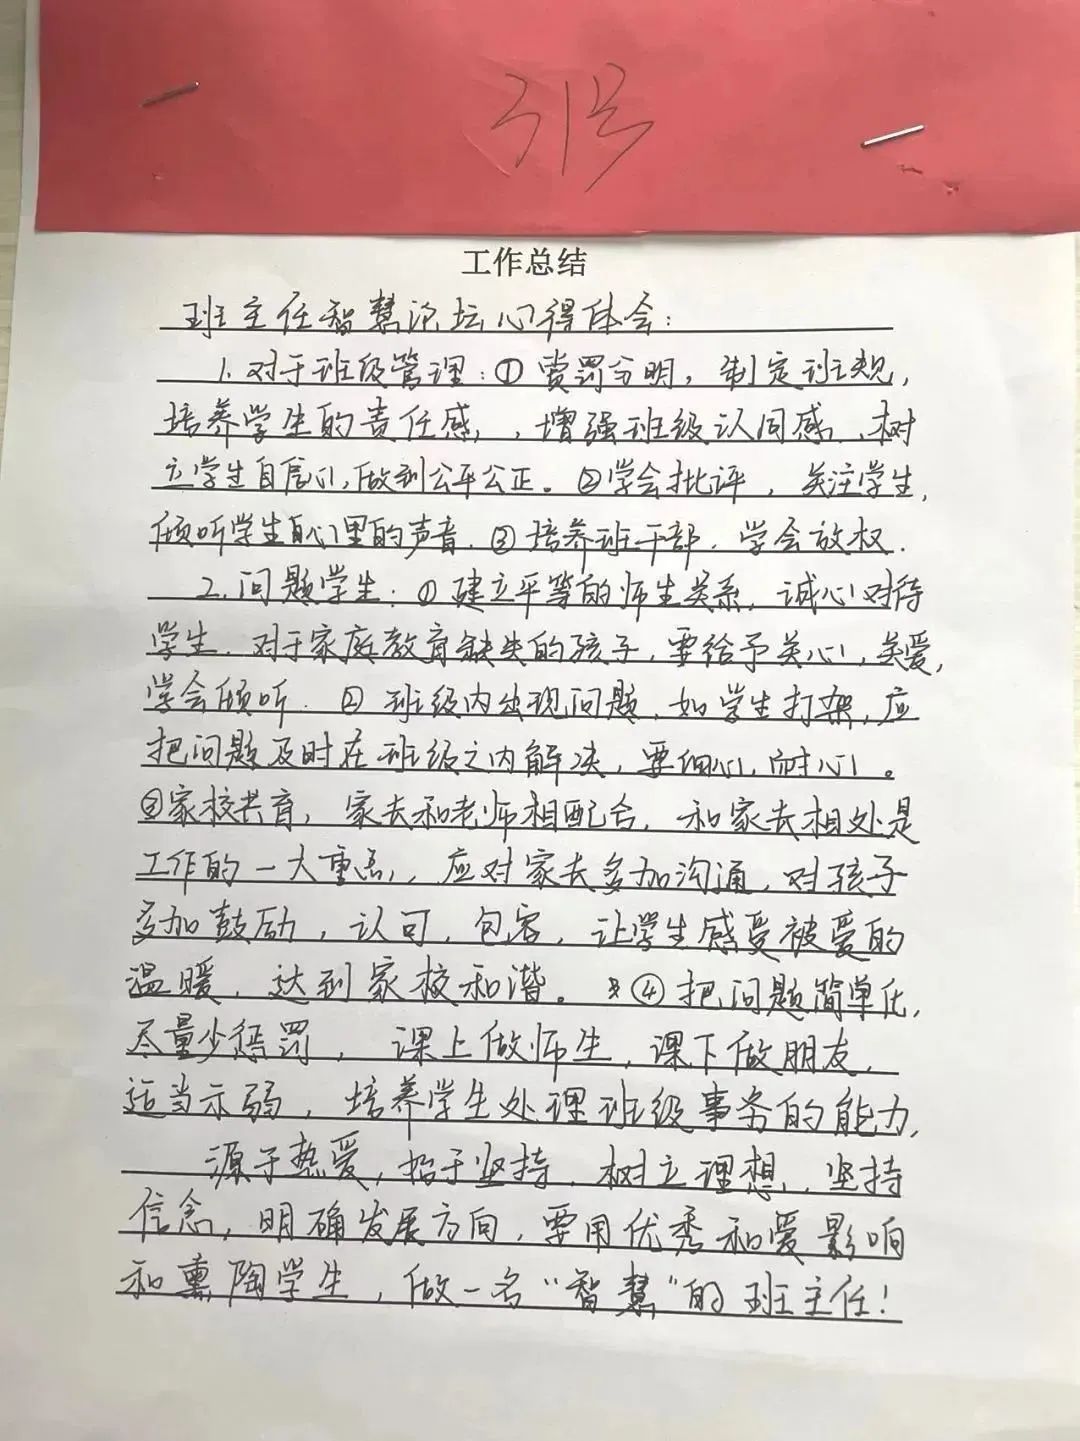 31号
工作总结
班主任智慧论坛心得体会:
1.对于班级管理:①赏罚分明,制定班规,
培养学生的责任感,,增强班级认同感,树
立学生自信心,做到公平公正。②学会批评,关注学生,
倾听学生自心里的声音.③培养班干部.学会放权.
2.问题学生:①建立平等的师生关系,诚心对待
学生.对于家庭教育缺失的孩子,要给予关心,关爱,
学会倾听.②班级内出现问题,如学生打架,应
把问题及时在班级之内解决,要细心,耐心。
③家校共育,家长和老师相配合,和家长相处是
工作的一大重点,应对家长多加沟通,对孩子
多加鼓励,认可,包容,让学生感受被爱的
温暖,达到家校和谐。④把问题简单化,
尽量少惩罚,课上做师生,课下做朋友,
适当示弱,培养学生处理班级事务的能力,
源于热爱,始于坚持,树立理想,坚持
信念,明确发展方向,要用优秀和爱影响
和熏陶学生,做一名“智慧”的班主任!